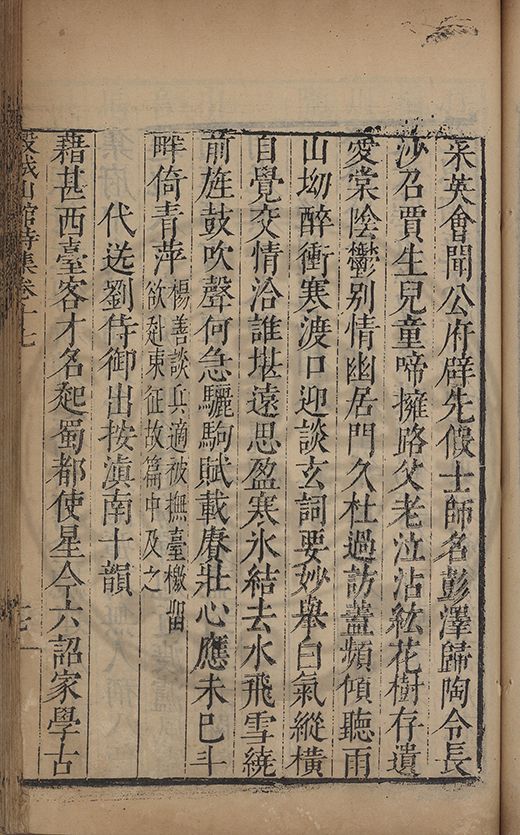 采英會聞公府辟先假士師名彭澤歸陶令長
沙召賈生兒童啼擁路父老泣沾紘花樹存遺
愛棠陰鬱别情幽居門久杜過訪蓋頻傾聽雨
山坳醉衝寒渡口迎談玄詞要妙舉白氣縱橫
自覺交情洽誰堪遠思盈寒氷結去水飛雪繞
前旌鼓吹聲何急驪駒賦載賡壯心應未巳斗
畔倚青萍
楊善談兵適被撫臺檄畱
欲赴東征故篇中及之
代送劉侍御出按滇南十韻
藉甚西臺客才名起蜀都使星今六詔家學古
穀城山館詩集卷十七